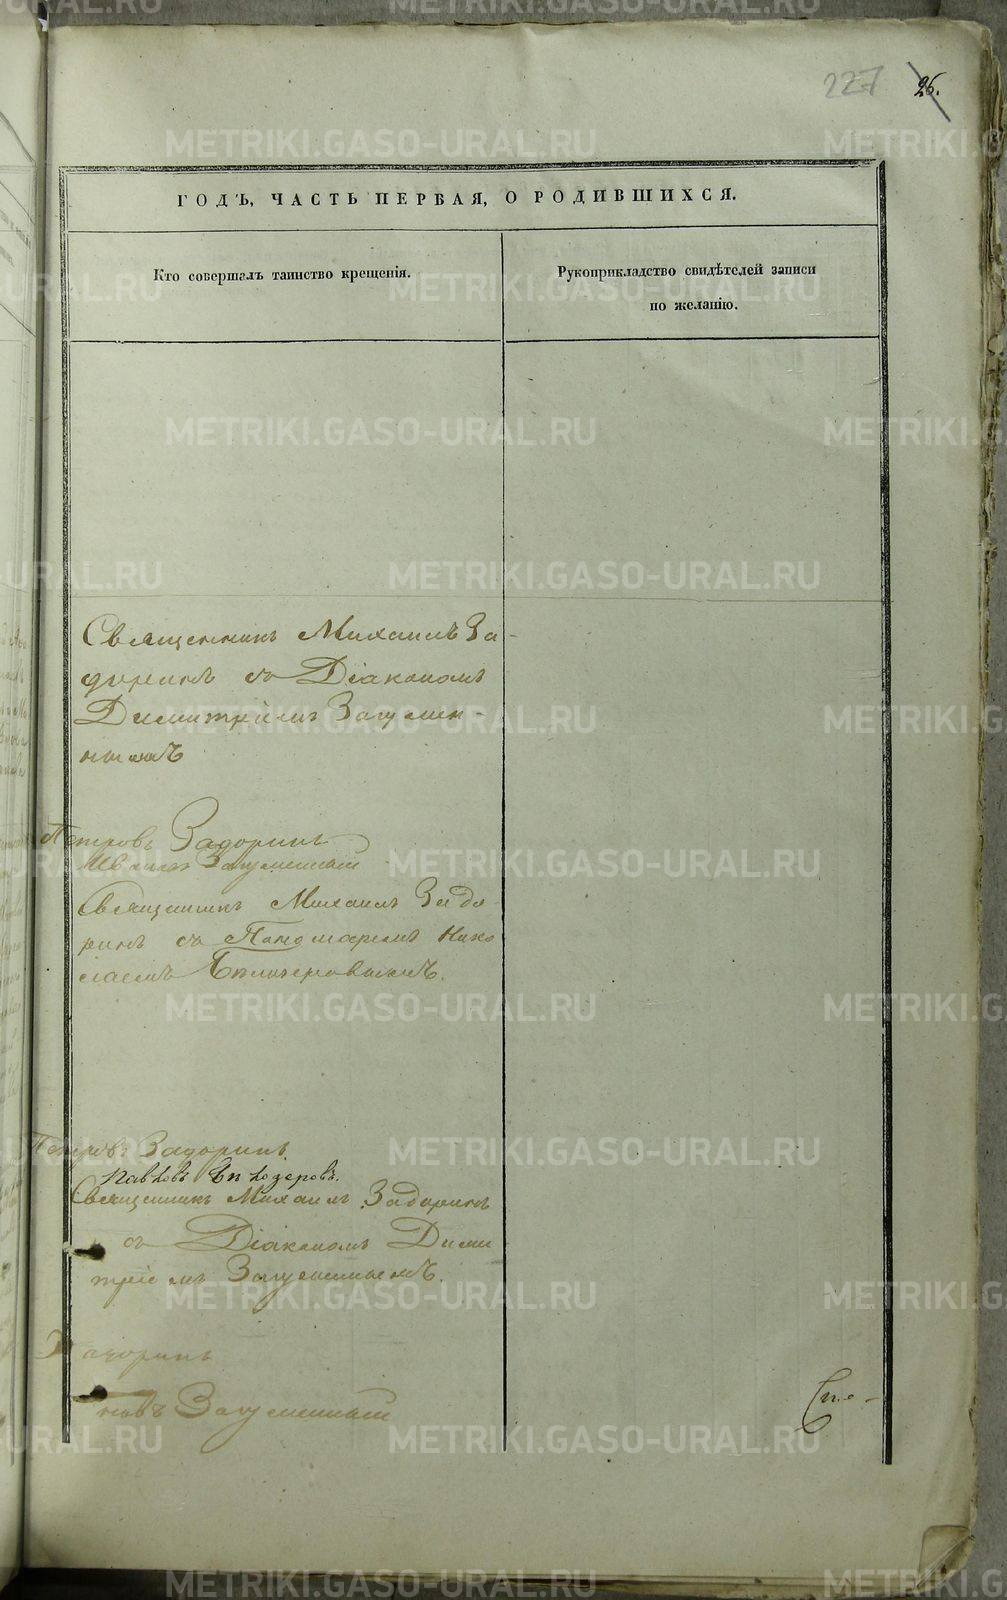 227 26.
ГОДЪ, ЧАСТЬ ПЕРВАЯ, О РОДИВШИХСЯ.
Кто совершалъ таинство крещенія.
Рукоприкладство свидѣтелей записи
по желанію.
Священникъ Михаилъ За-
доринъ съ Діакономъ
Димитріемъ Загумен-
нымъ
Петровъ Задоринъ
Ивановъ Загуменный
Священникъ Михаилъ Задо
ринъ съ Пономаремъ Нико
лаемъ Бѣлозеровымъ.
Петровъ Задоринъ
Павловъ Бѣлозеровъ.
Священникъ Михаилъ Задоринъ
съ Діакономъ Дими
тріемъ Загуменнымъ.
Задоринъ
новъ Загуменный
METRIKI.GASO-URAL.RU